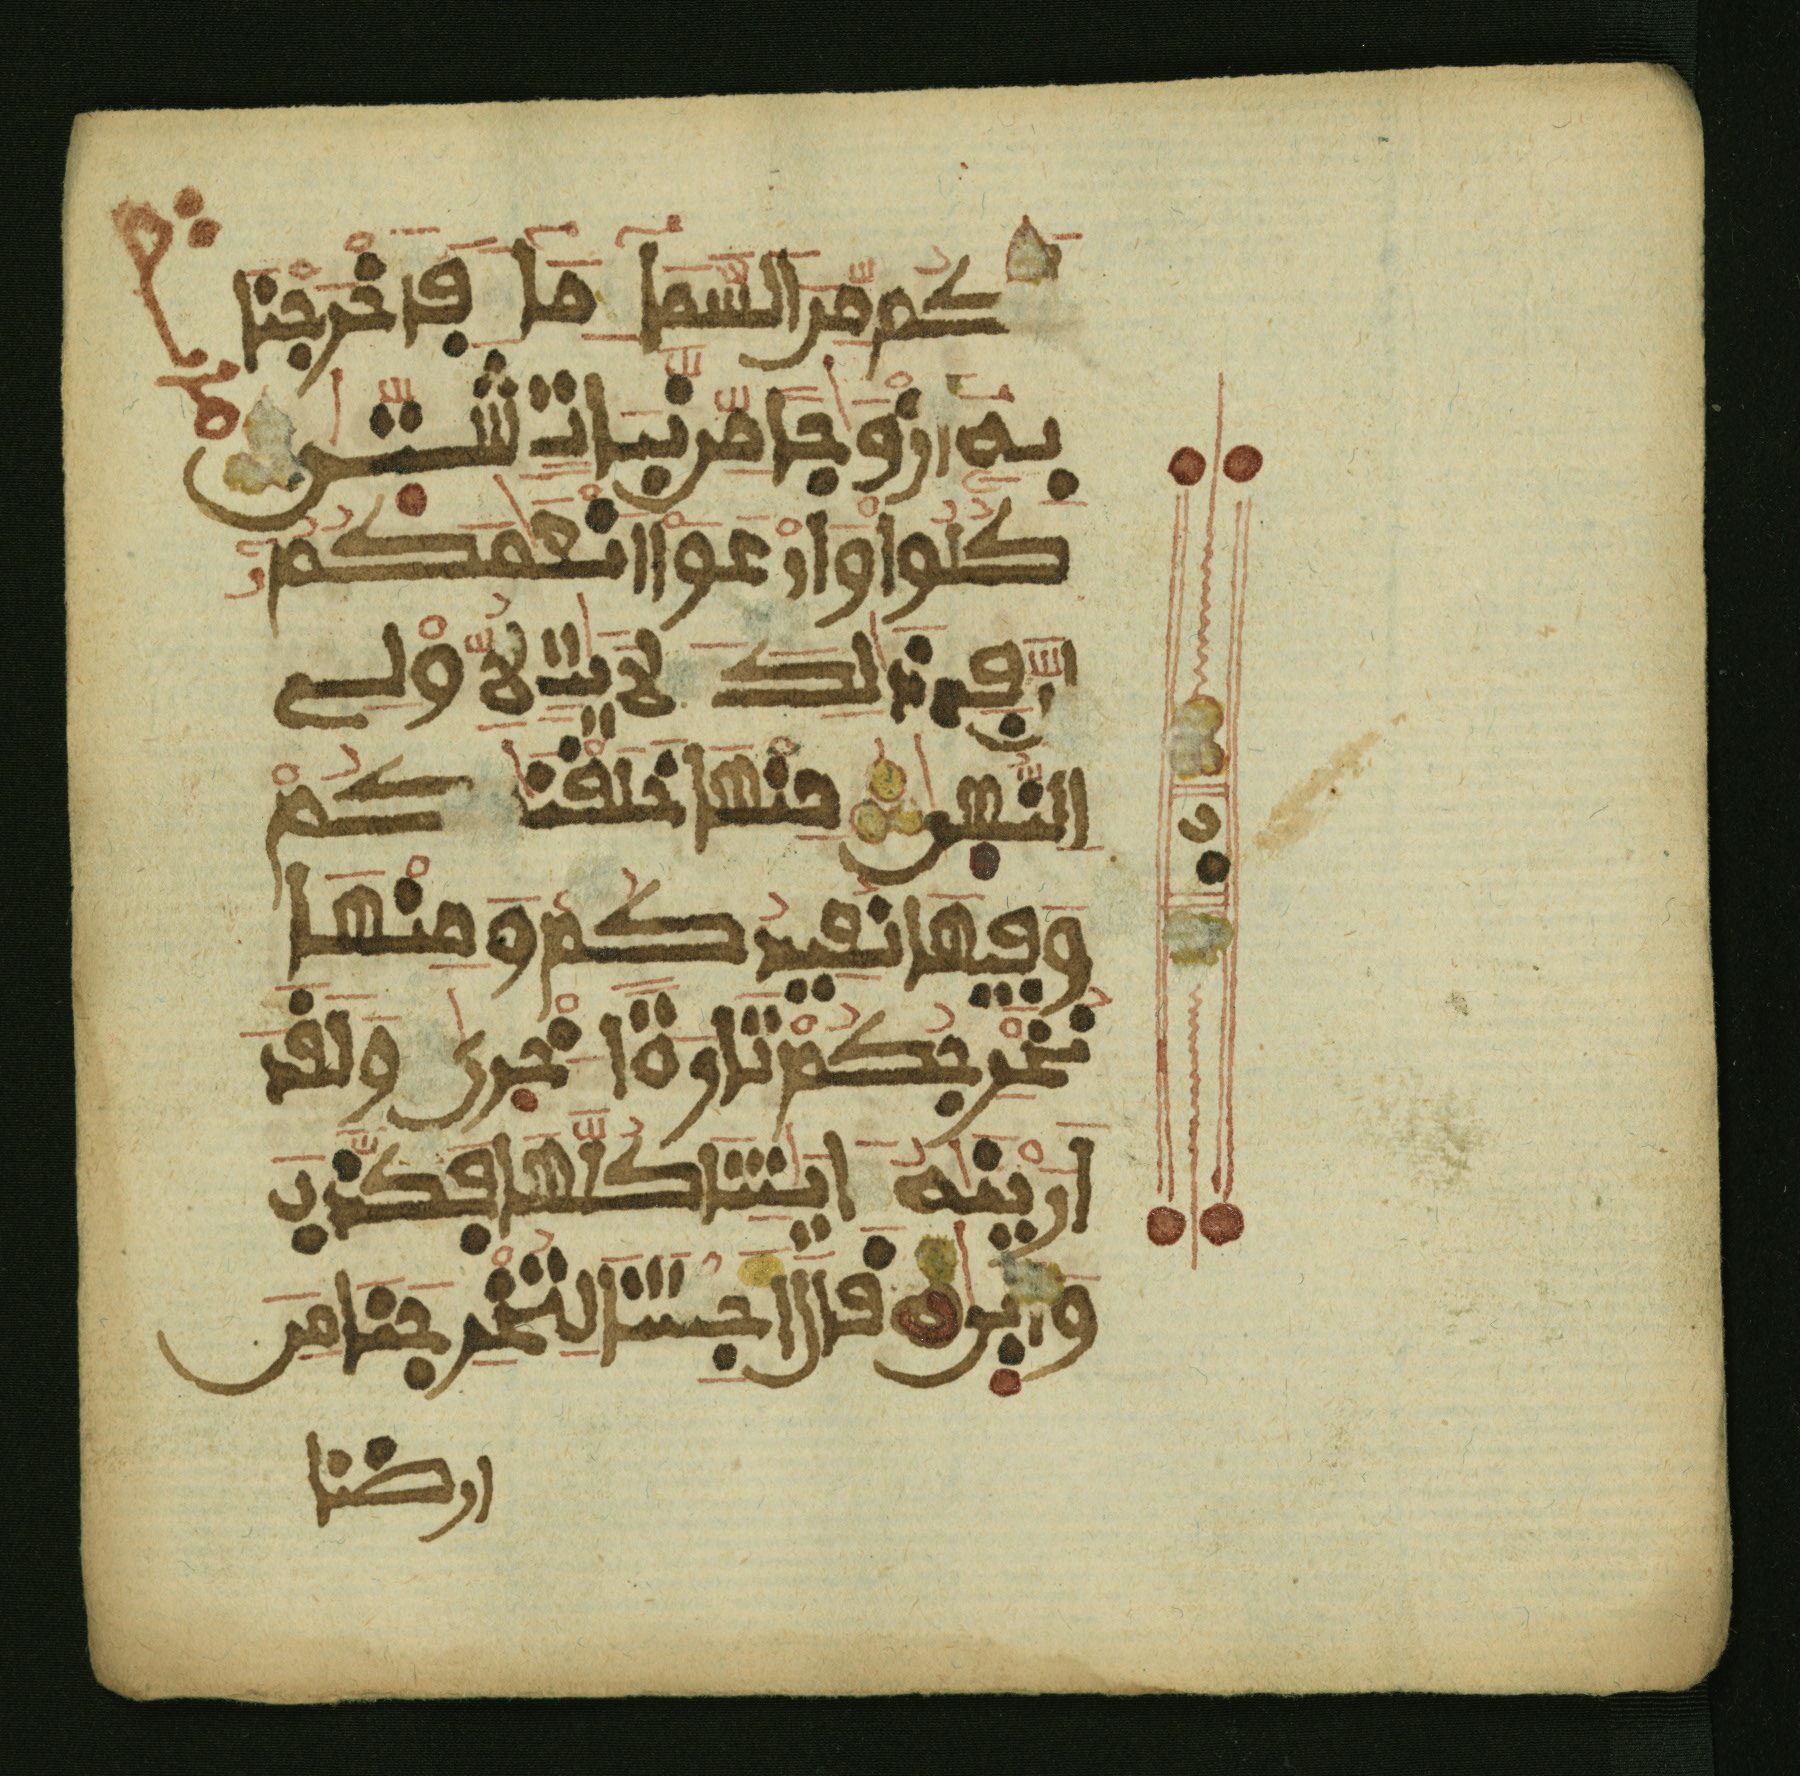 كم من السما ما فاخرجنا
به ازوجا من نبات شتى
كلوا وارعوا انعمكم
ان في ذلك لايت لاولي
النهى منها خلقنا كم
وفيها نعيدكم ومنها
نخرجكم تارة اخرى ولقد
ارينه ايتنا كلها فكذب
وابى قال اجئتنا لتخرجنا من
ارضنا